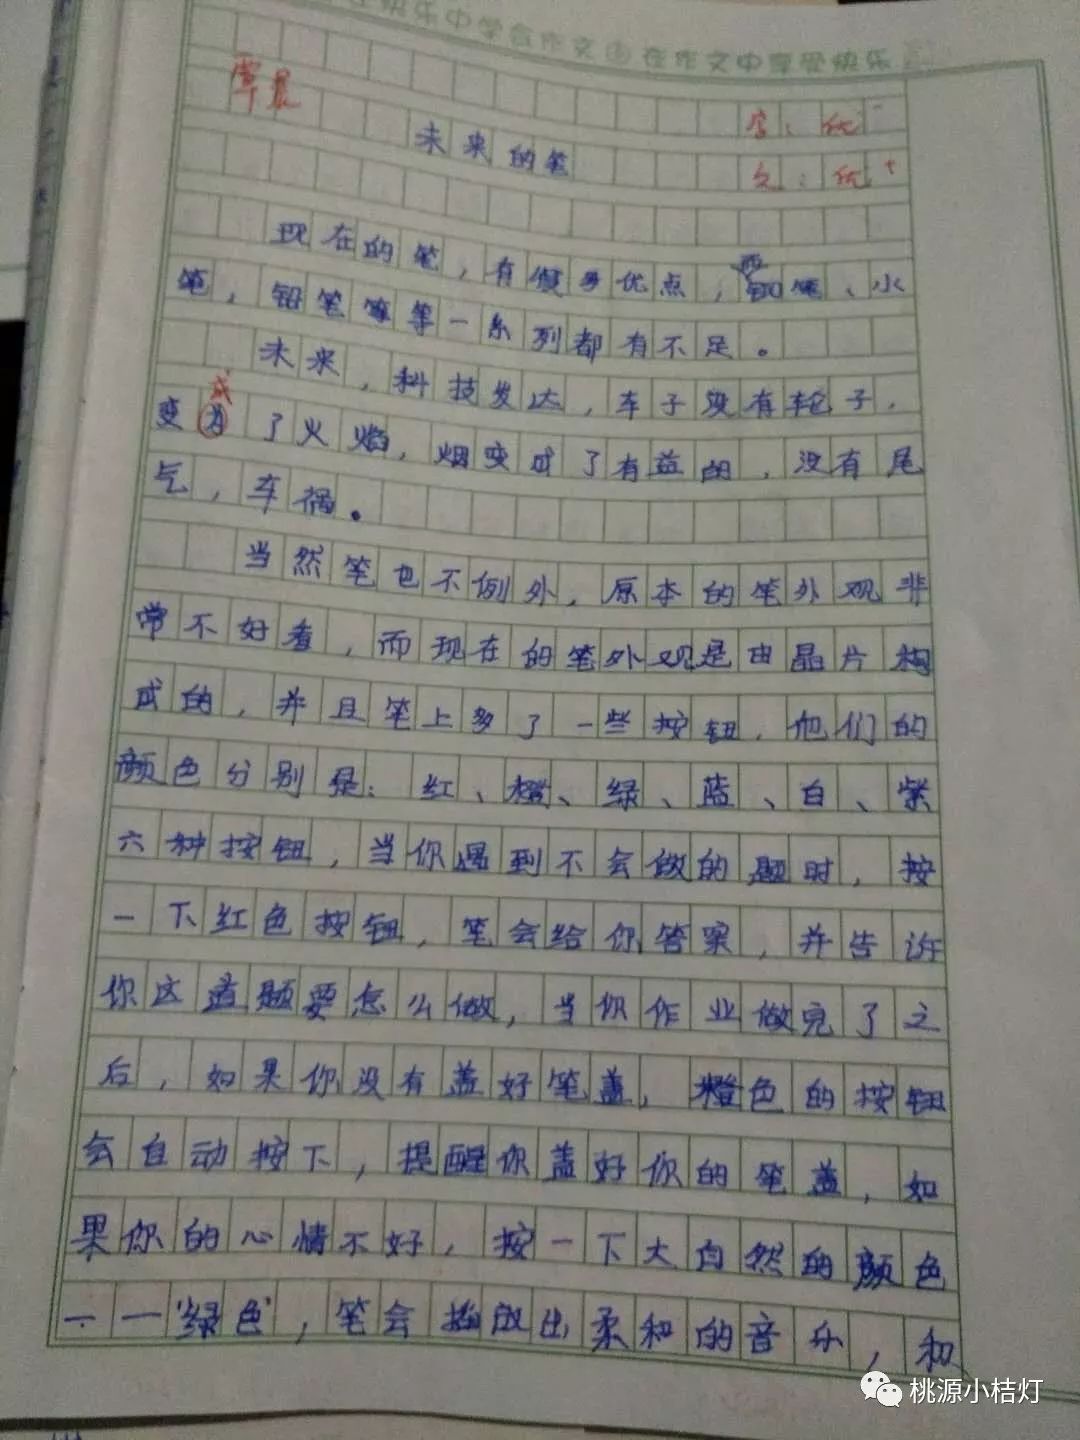 快乐中学会作文 在作文中享受快乐
覃晨
字：优-
未来的笔
文：优+
现在的笔，有很多优点，而钢笔、水
笔，铅笔等等一系列都有不足。
未来，科技发达，车子没有轮子，
成
变为了火焰，烟变成了有益的，没有尾
气，车祸。
当然笔也不例外，原本的笔外观非
常不好看，而现在的笔外观是由晶片构
成的，并且笔上多了一些按钮，他们的
颜色分别是：红、橙、绿、蓝、白、紫
六种按钮，当你遇到不会做的题时，按
一下红色按钮，笔会给你答案，并告诉
你这道题要怎么做，当你作业做完了之
后，如果你没有盖好笔盖，橙色的按钮
会自动按下，提醒你盖好你的笔盖，如
果你的心情不好，按一下大自然的颜色
——“绿色”，笔会播放出柔和的音乐，和
桃源小桔灯